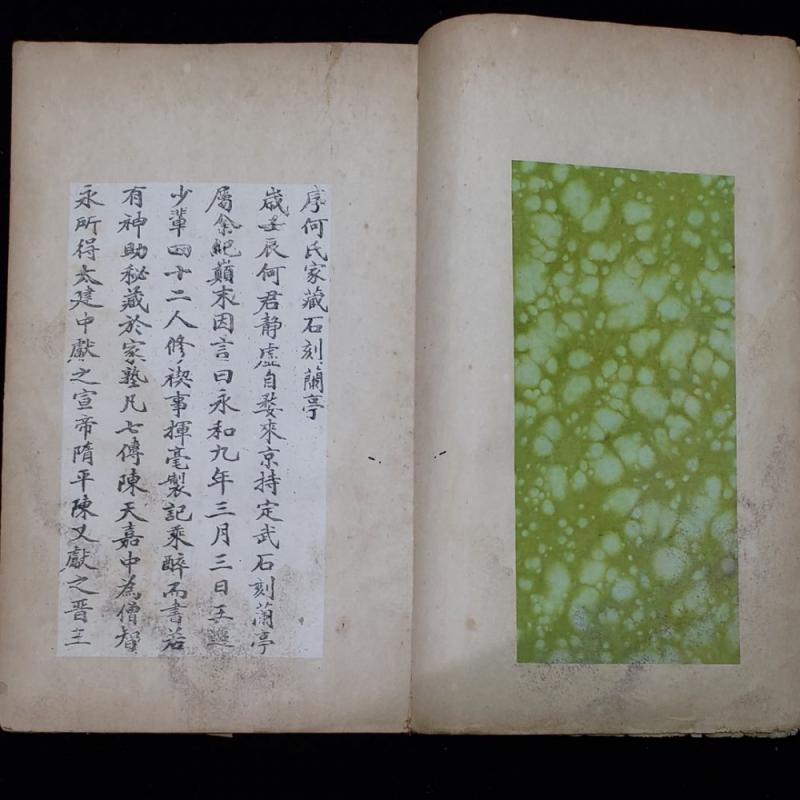 序何氏家藏石刻蘭亭
歲壬辰何君静虛自婺來京持定武石刻蘭亭
屬余紀巔末因言曰永和九年三月三日王逸
少輩四十二人修禊事揮毫製記乘醉而書若
有神助秘藏於家塾凡七傳陳天嘉中為僧智
永所得太建中獻之宣帝隋平陳又獻之晋王